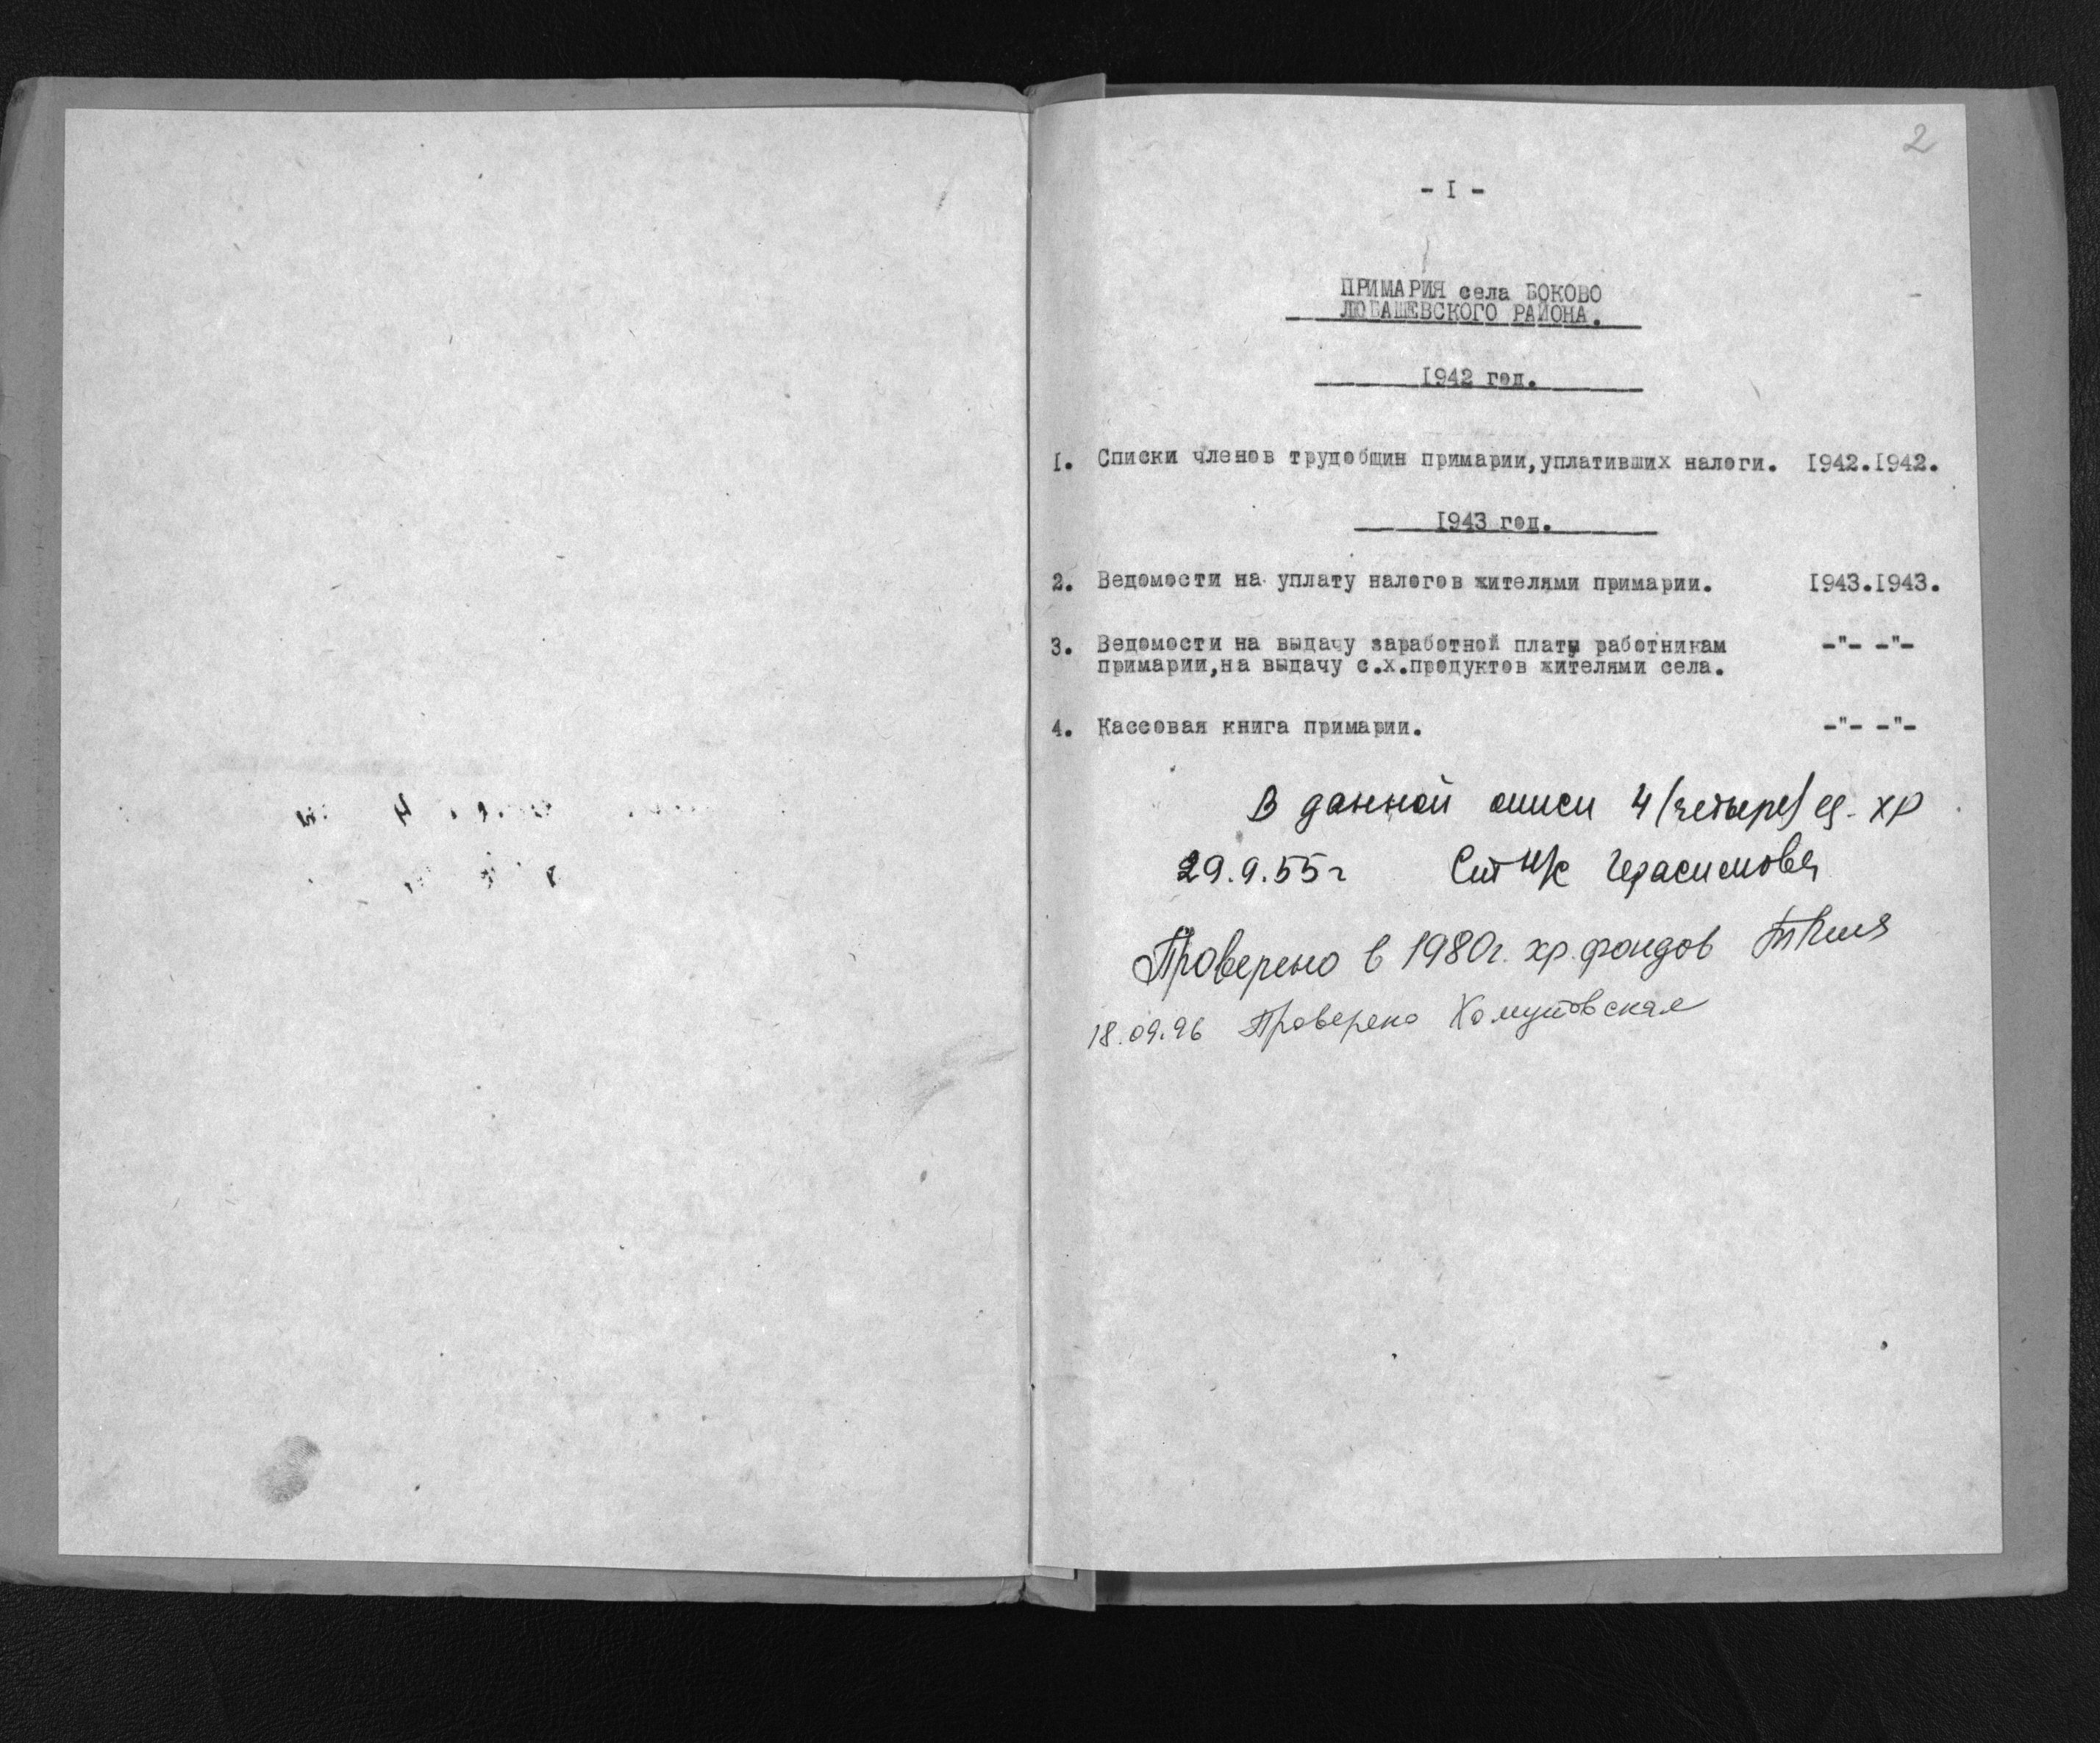 2
- I -
ПРИМАРИЯ села БОКОВО
ЛЮБАШЕВСКОГО РАЙОНА.
1942 год.
1. Списки членов трудобщин примарии, уплативших налоги. 1942.1942.
1943 год.
2. Ведомости на уплату налогов жителями примарии. 1943.1943.
3. Ведомости на выдачу заработной платы работникам -"- -"-
примарии, на выдачу с.х.продуктов жителями села.
4. Кассовая книга примарии. -"- -"-
В данной описи 4 (четыре) ед. хр
29.9.55г Герасимова
Проверено в 1980г. хр. фондов
18.09.96 Проверено Хомутовская